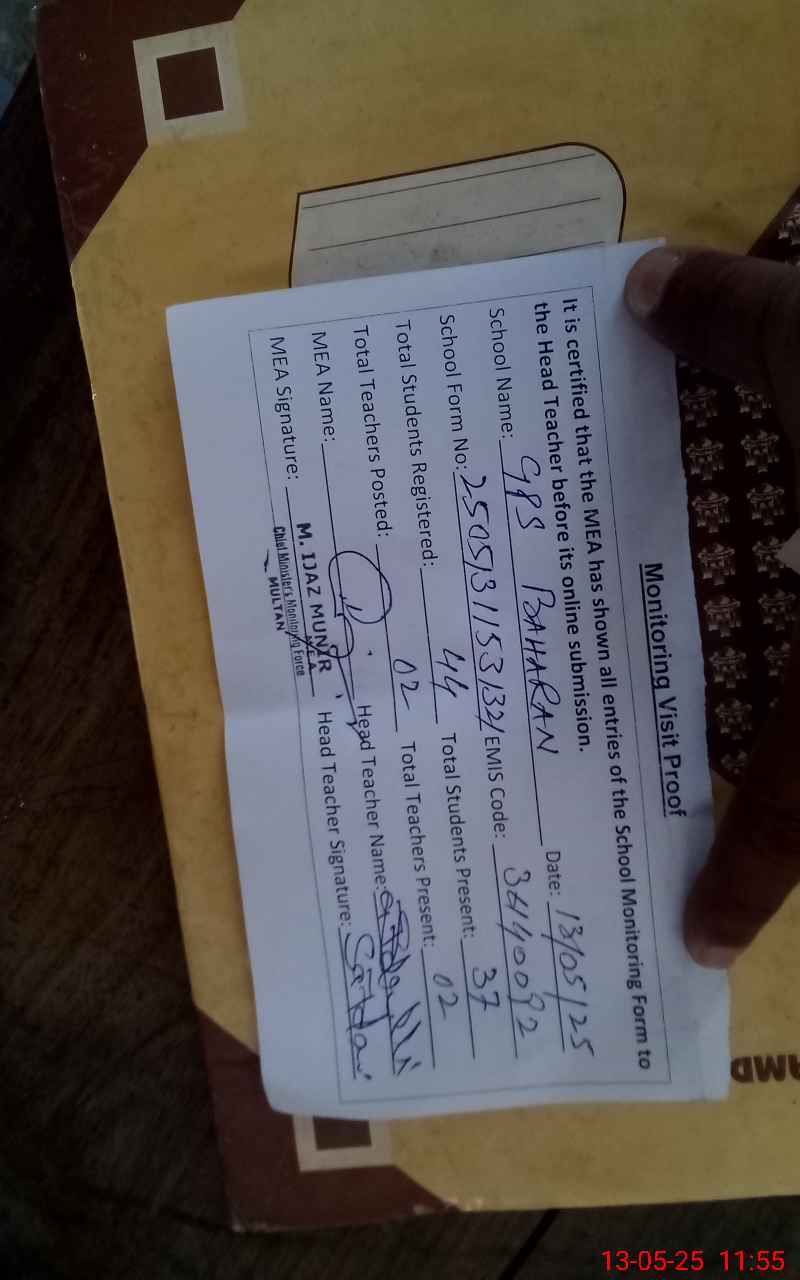 Monitoring Visit Proof
It is certified that the MEA has shown all entries of the School Monitoring Form to
the Head Teacher before its online submission.
School Name: GPS BAHARAN Date: 13/05/25
School Form No: EMIS Code:
Total Students Registered: 44 Total Students Present: 37
Total Teachers Posted: 02 Total Teachers Present: 02
MEA Name: Head Teacher Name:
MEA Signature: Head Teacher Signature:
M. IJAZ MUNIR
MEA
Chief Minister's Monitoring Force
MULTAN
13-05-25 11:55